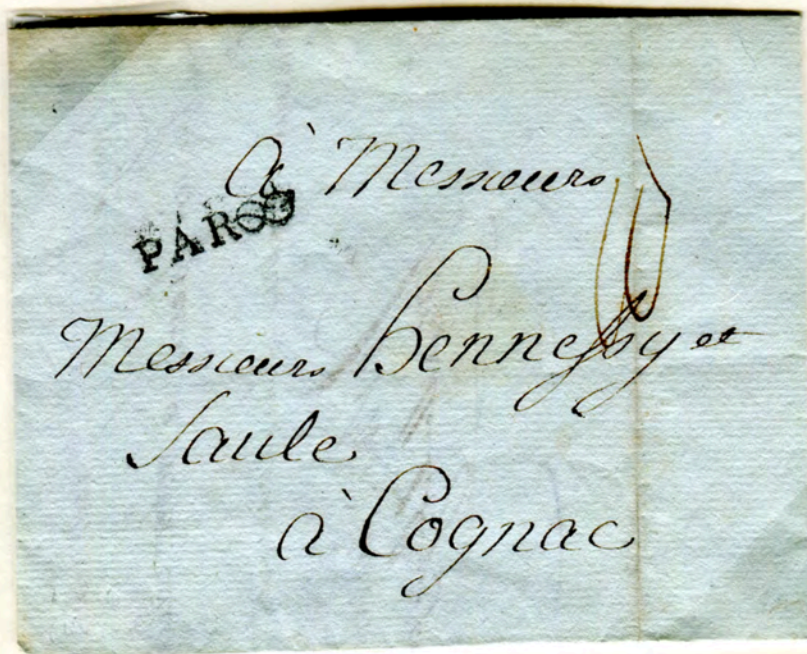 à Messieurs
PARIS
Messieurs hennessy et
Saule
à Cognac